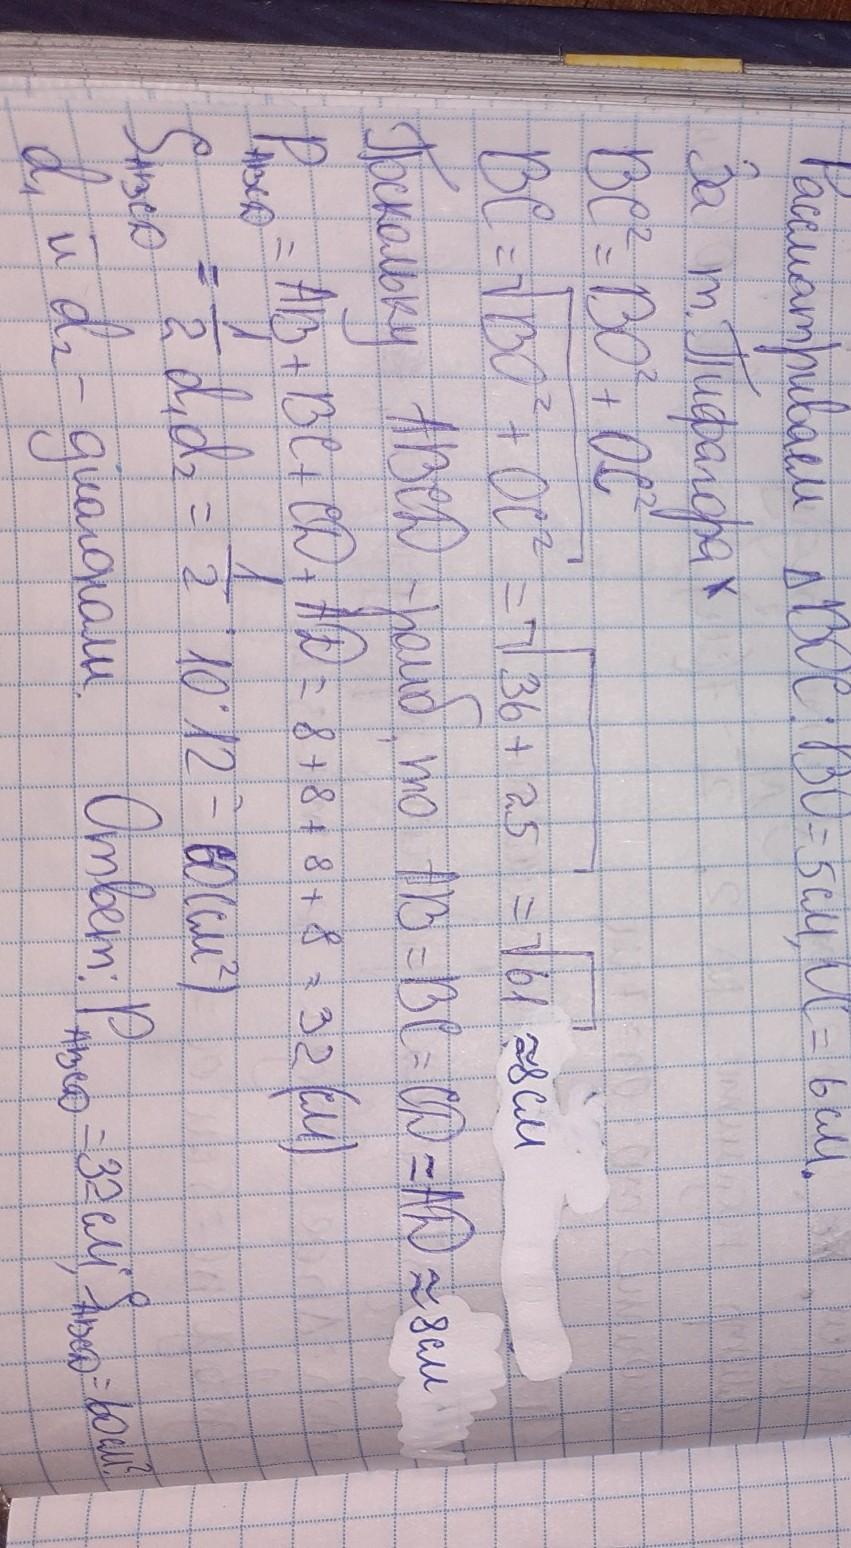 Рассматриваем ΔBOC: BO=5см, OC=6см.
За т. Пифагора
BC²=BO²+OC²
BC=√BO²+OC² =√36+25 =√61 ≈8см
Поскольку ABCD - ромб, то AB=BC=CD=AD≈8см
P ABCD =AB+BC+CD+AD=8+8+8+8=32(см)
S ABCD =1/2 d₁d₂=1/2·10·12=60(см²)
d₁ и d₂ - диагонали. Ответ: P ABCD =32см, S ABCD =60см².